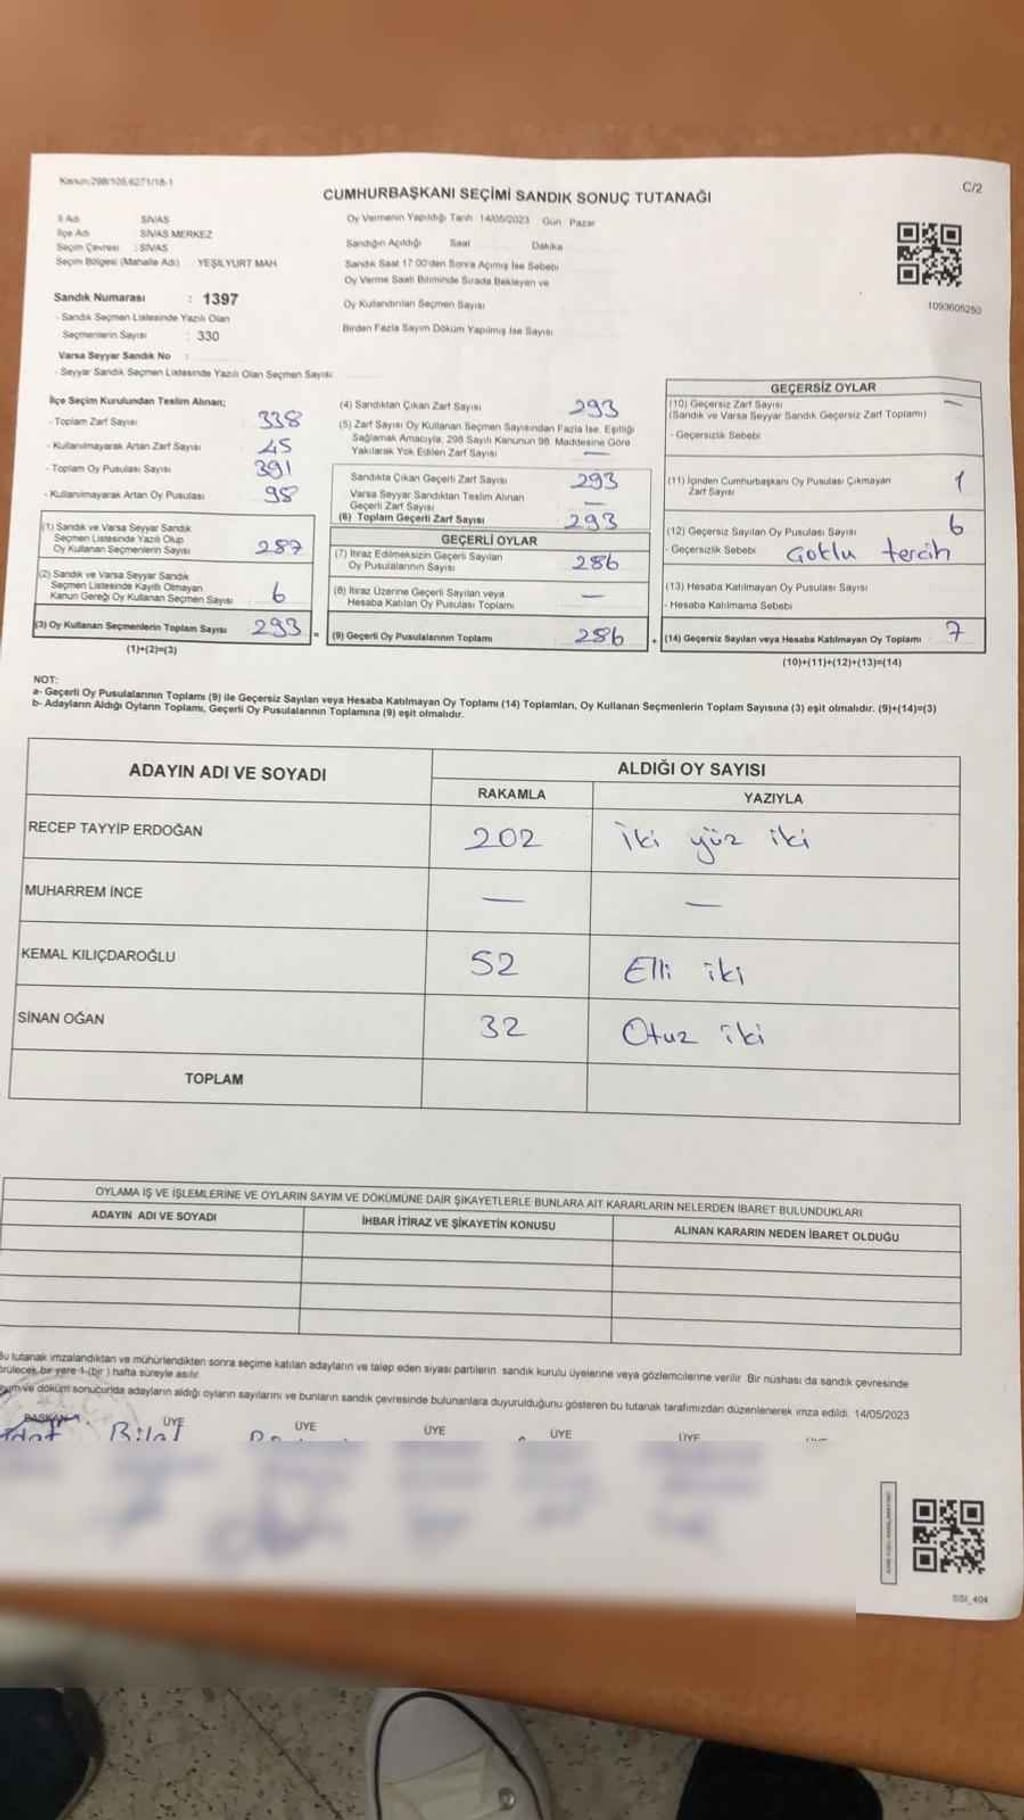 Kanun:298/105,6271/18-1
C/2
CUMHURBAŞKANI SEÇİMİ SANDIK SONUÇ TUTANAĞI
İl Adı SİVAS
İlçe Adı SİVAS MERKEZ
Seçim Çevresi : SİVAS
Seçim Bölgesi (Mahalle Adı) YEŞİLYURT MAH
Sandık Numarası : 1397
- Sandık Seçmen Listesinde Yazılı Olan
Seçmenlerin Sayısı : 330
Varsa Seyyar Sandık No :
- Seyyar Sandık Seçmen Listesinde Yazılı Olan Seçmen Sayısı
Oy Vermenin Yapıldığı Tarih 14/05/2023 Gün Pazar
Sandığın Açıldığı Saat Dakika
Sandık Saat 17:00'den Sonra Açılmış İse Sebebi
Oy Verme Saati Bitiminde Sırada Bekleyen ve
Oy Kullandırılan Seçmen Sayısı
Birden Fazla Sayım Döküm Yapılmış İse Sayısı
1093605253
İlçe Seçim Kurulundan Teslim Alınan;
- Toplam Zarf Sayısı 338
- Kullanılmayarak Artan Zarf Sayısı 45
- Toplam Oy Pusulası Sayısı 391
- Kullanılmayarak Artan Oy Pusulası 98
(1) Sandık ve Varsa Seyyar Sandık
Seçmen Listesinde Yazılı Olup
Oy Kullanan Seçmenlerin Sayısı 287
(2) Sandık ve Varsa Seyyar Sandık
Seçmen Listesinde Kayıtlı Olmayan
Kanun Gereği Oy Kullanan Seçmen Sayısı 6
(3) Oy Kullanan Seçmenlerin Toplam Sayısı 293 =
(1)+(2)=(3)
(4) Sandıktan Çıkan Zarf Sayısı 293
(5) Zarf Sayısı Oy Kullanan Seçmen Sayısından Fazla İse, Eşitliği
Sağlamak Amacıyla, 298 Sayılı Kanunun 98. Maddesine Göre
Yakılarak Yok Edilen Zarf Sayısı —
Sandıkta Çıkan Geçerli Zarf Sayısı 293
Varsa Seyyar Sandıktan Teslim Alınan
Geçerli Zarf Sayısı —
(6) Toplam Geçerli Zarf Sayısı 293
GEÇERLİ OYLAR
(7) İtiraz Edilmeksizin Geçerli Sayılan
Oy Pusulalarının Sayısı 286
(8) İtiraz Üzerine Geçerli Sayılan veya
Hesaba Katılan Oy Pusulası Toplamı —
(9) Geçerli Oy Pusulalarının Toplamı 286 +
GEÇERSİZ OYLAR
(10) Geçersiz Zarf Sayısı —
(Sandık ve Varsa Seyyar Sandık Geçersiz Zarf Toplamı)
- Geçersizlik Sebebi
(11) İçinden Cumhurbaşkanı Oy Pusulası Çıkmayan
Zarf Sayısı 1
(12) Geçersiz Sayılan Oy Pusulası Sayısı 6
- Geçersizlik Sebebi Çoklu tercih
(13) Hesaba Katılmayan Oy Pusulası Sayısı
- Hesaba Katılmama Sebebi
(14) Geçersiz Sayılan veya Hesaba Katılmayan Oy Toplamı 7
(10)+(11)+(12)+(13)=(14)
NOT:
a- Geçerli Oy Pusulalarının Toplamı (9) ile Geçersiz Sayılan veya Hesaba Katılmayan Oy Toplamı (14) Toplamları, Oy Kullanan Seçmenlerin Toplam Sayısına (3) eşit olmalıdır. (9)+(14)=(3)
b- Adayların Aldığı Oyların Toplamı, Geçerli Oy Pusulalarının Toplamına (9) eşit olmalıdır.
ADAYIN ADI VE SOYADI
ALDIĞI OY SAYISI
RAKAMLA YAZIYLA
RECEP TAYYİP ERDOĞAN 202 İki yüz iki
MUHARREM İNCE — —
KEMAL KILIÇDAROĞLU 52 Elli iki
SİNAN OĞAN 32 Otuz iki
TOPLAM
OYLAMA İŞ VE İŞLEMLERİNE VE OYLARIN SAYIM VE DÖKÜMÜNE DAİR ŞİKAYETLERLE BUNLARA AİT KARARLARIN NELERDEN İBARET BULUNDUKLARI
ADAYIN ADI VE SOYADI İHBAR İTİRAZ VE ŞİKAYETİN KONUSU ALINAN KARARIN NEDEN İBARET OLDUĞU
Bu tutanak imzalandıktan ve mühürlendikten sonra seçime katılan adayların ve talep eden siyasi partilerin sandık kurulu üyelerine veya gözlemcilerine verilir. Bir nüshası da sandık çevresinde
görülecek bir yere 1 (bir) hafta süreyle asılır.
ve döküm sonucunda adayların aldığı oyların sayılarını ve bunların sandık çevresinde bulunanlara duyurulduğunu gösteren bu tutanak tarafımızdan düzenlenerek imza edildi. 14/05/2023
BAŞKAN ÜYE ÜYE ÜYE ÜYE ÜYE
Bilal
SSI_404